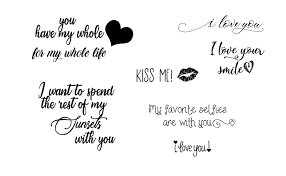 you
have my whole
for my whole life
i love you
I love your
smile
KISS ME!
I want to spend
the rest of my
Sunsets
with you
My favorite selfies
are with you
i love you